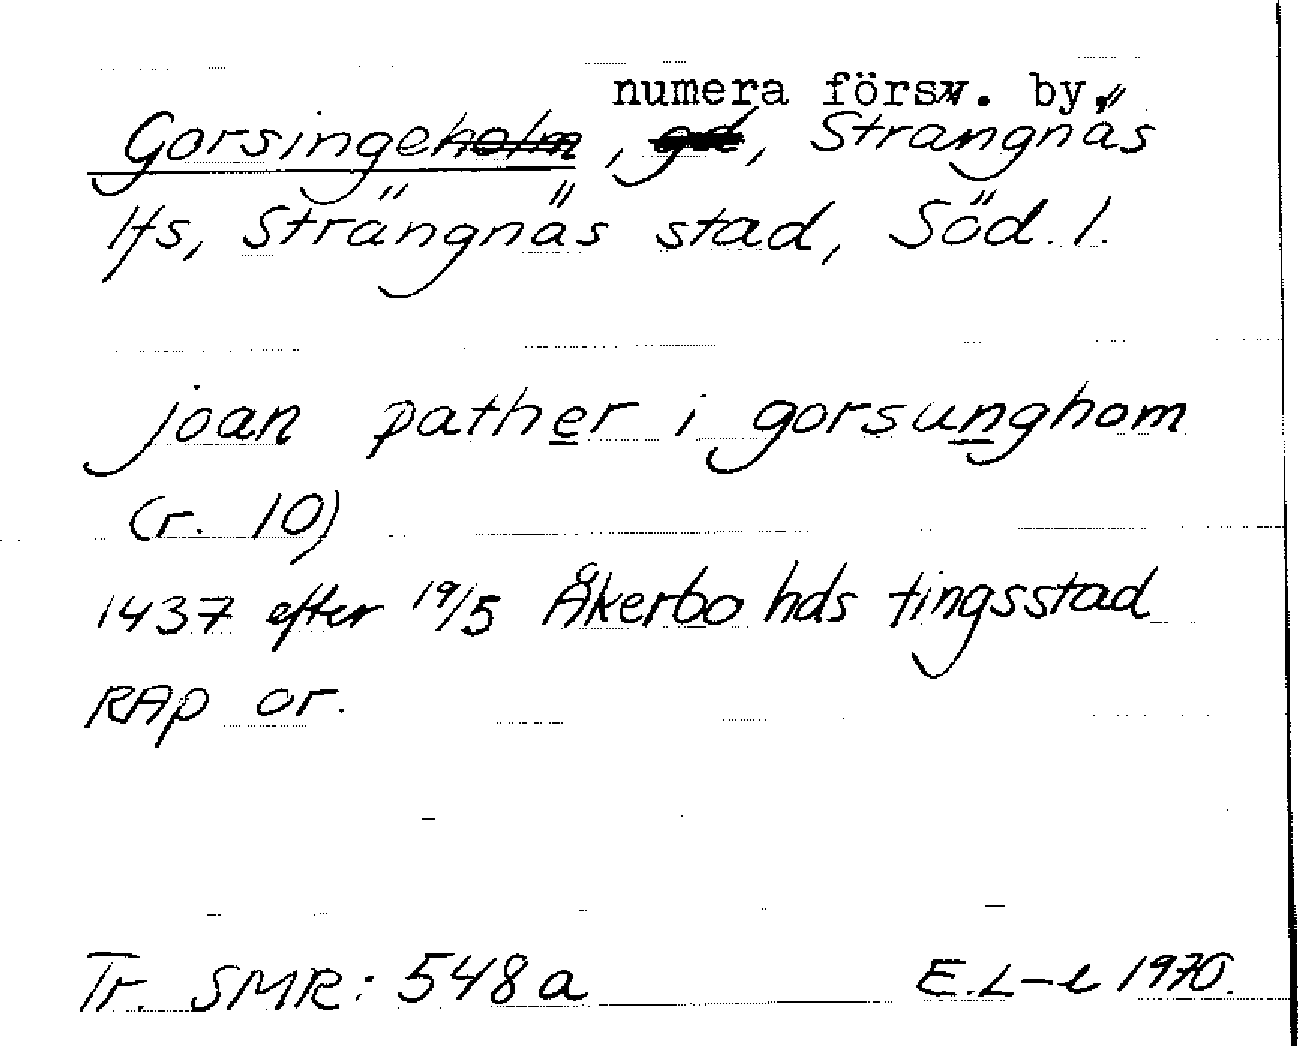 numera försv. by,
Gorsingeholm, gd, Strängnäs
lfs, Strängnäs stad, Söd. l.
joan pather i gorsunghom
(r. 10)
1437 efter 19/5 Åkerbo hds tingsstad
RAp or.
Tr. SMR: 548 a E.L-l 1970.